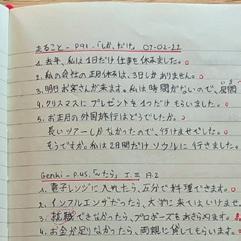 まるごと - P91 -「しか、だけ」 07-02-22
1. 去年、私は1日だけ仕事を休みました。
2. 私の会社の正月休みは、3日しかありません。
3. 明日お客さんが来ます。私は時間がないので、
4. クリスマスにプレゼントを1つだけもらいました。
5. お正月の外国旅行はどうでしたか。
長いツアーしかなかったので、行けませでした。
もうですか。私は2日間だけソウルに行きました。
Genki - P.45 -「〜たら」 I - II A.2
1. 電子レンジに入れたら、五分で料理できます。
2. インフルエンザだったら、大学に来てはいけませ
3. 就職できなかったら、ブロガーズをあきらめま
4. お金が足りなかったら、両親に貸してもらいます。